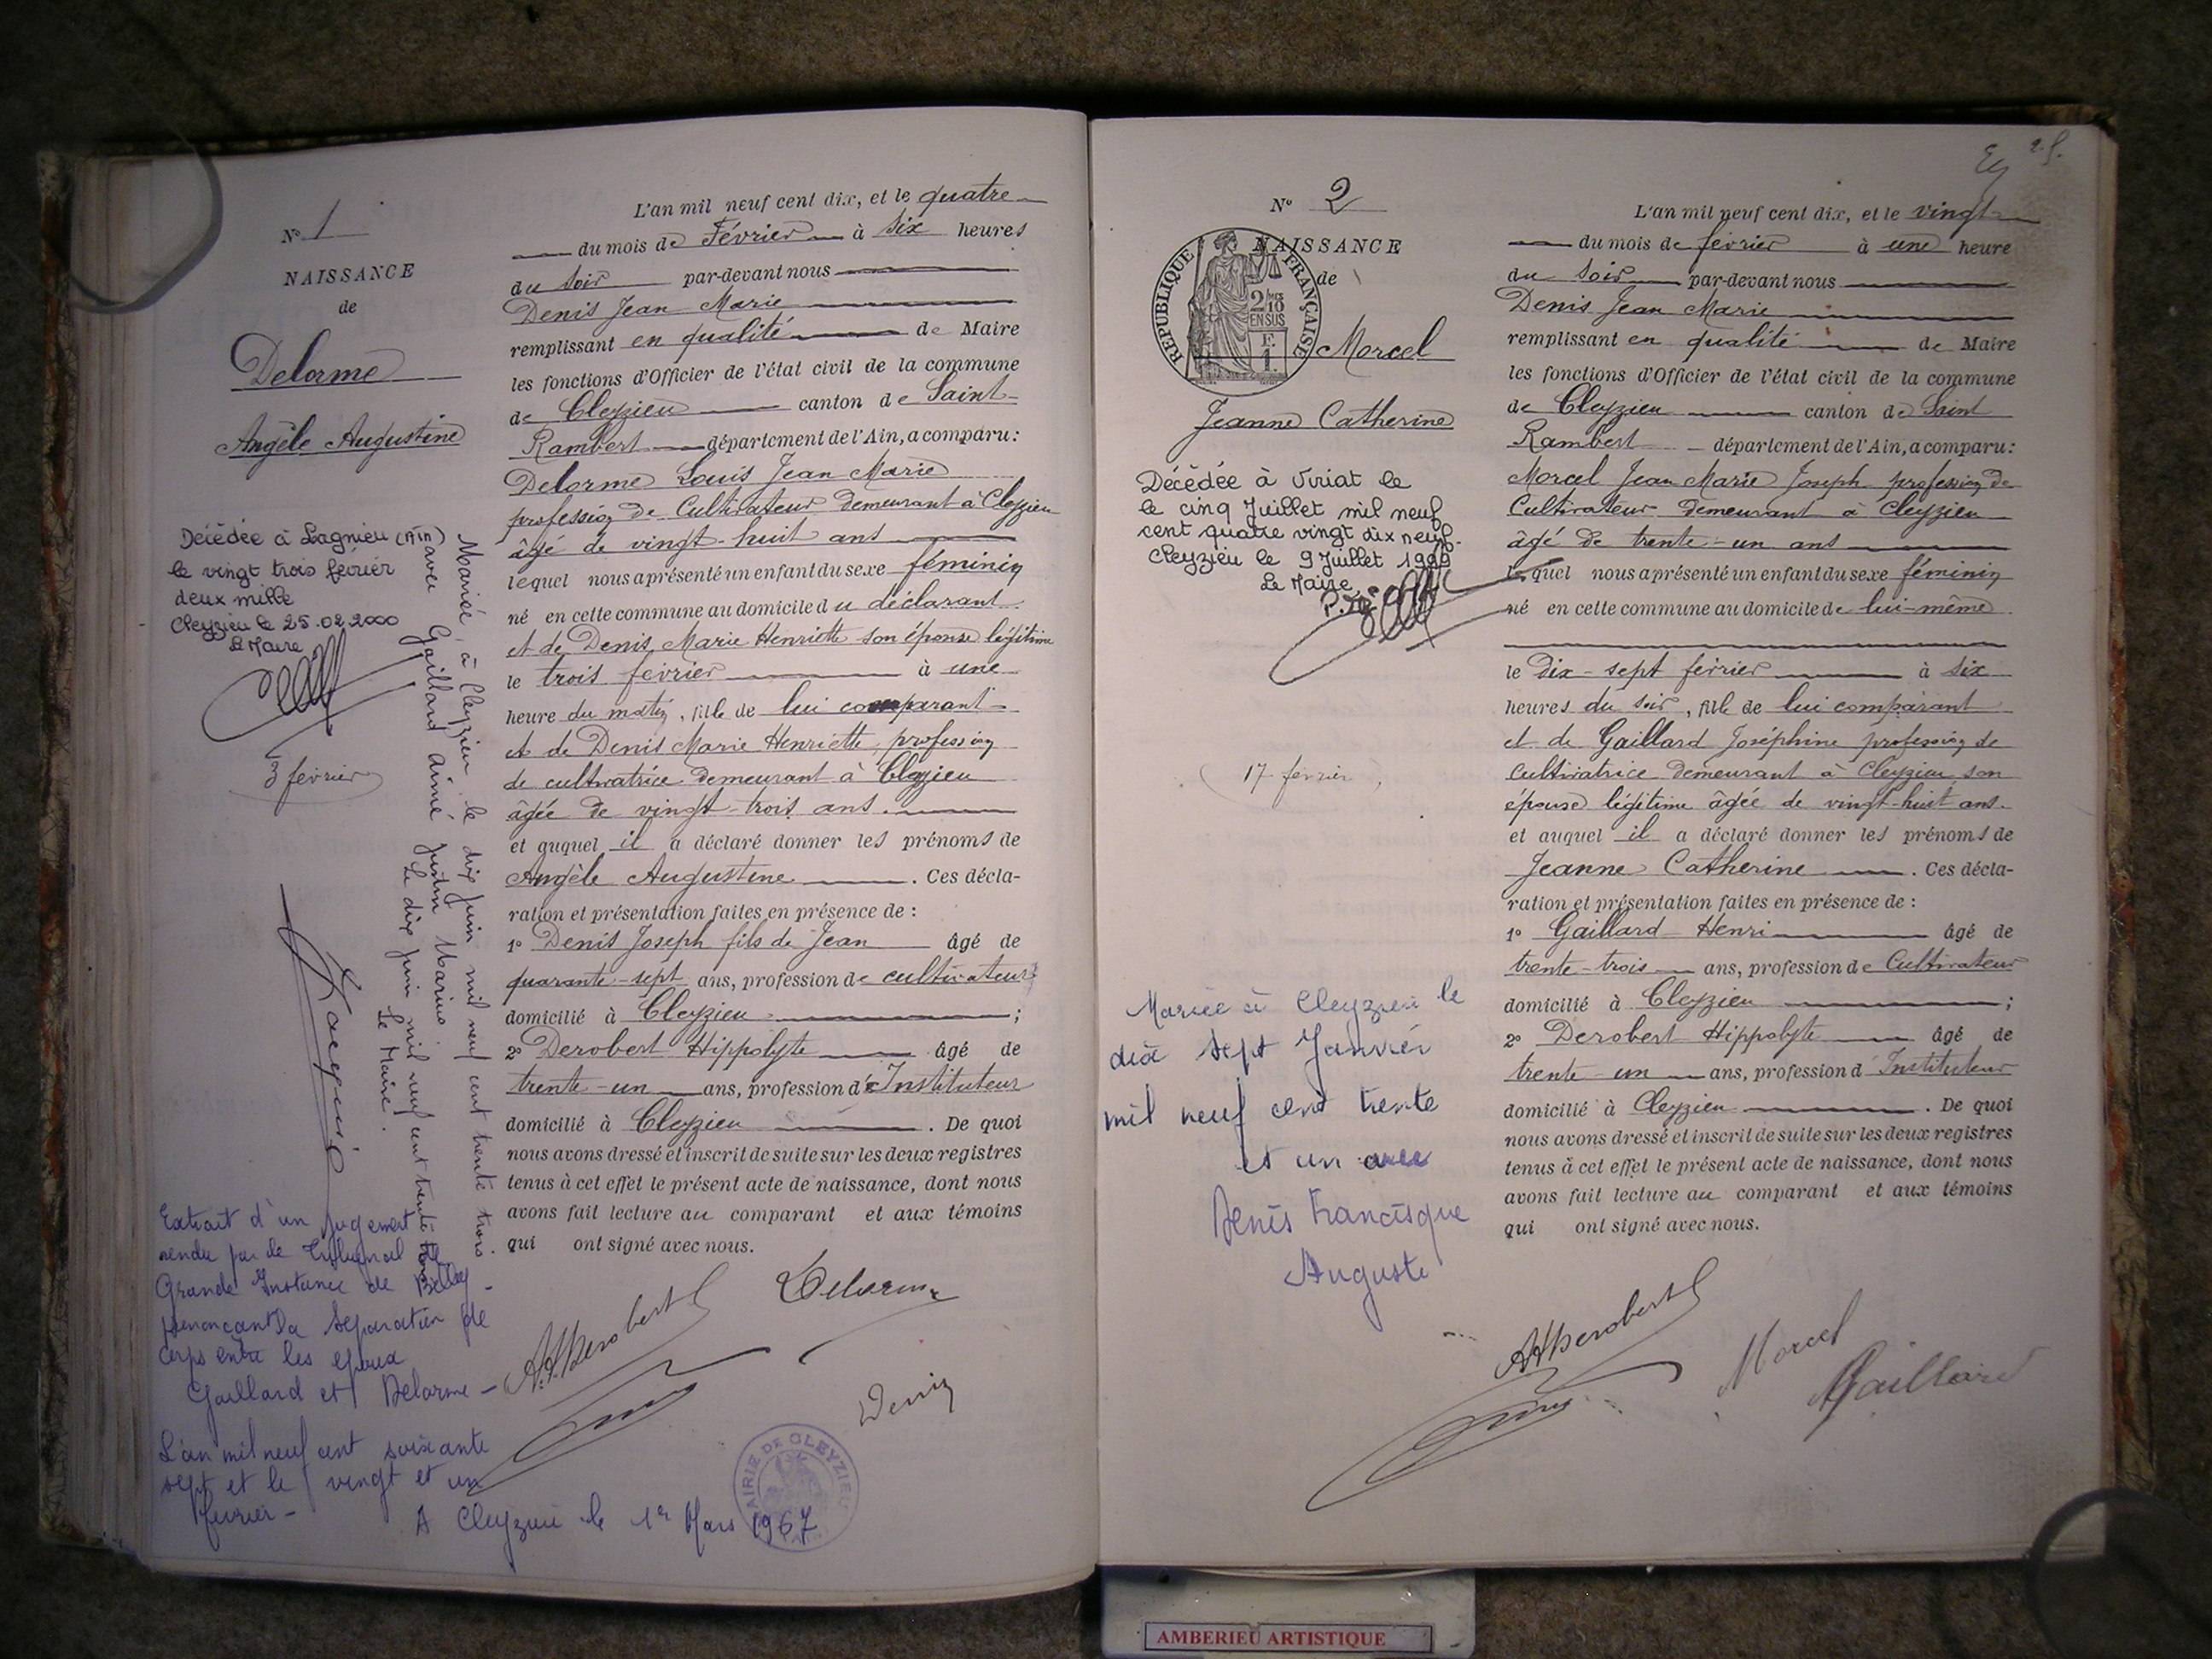 N° 1
NAISSANCE
de
Delorme
Angèle Augustine
Décédée à Lagnieu (Ain)
le vingt trois février
deux mille
Cleyzieu le 25.02.2000
Le Maire
3 février
Mariée à Cleyzieu le dix juin mil neuf cent trente trois
avec Gaillard Aimé Justin Marius
Le dix juin mil neuf cent trente trois
Le Maire.
Extrait d'un jugement
rendu par le Tribunal de
Grande Instance de Belley
prononçant la séparation de
corps entre les époux
Gaillard et Delorme -
L'an mil neuf cent soixante
sept et le vingt et un
février -
A Cleyzieu le 1er Mars 1967
MAIRIE DE CLEYZIEU
L'an mil neuf cent dix, et le quatre
du mois de Février à six heures
du soir par-devant nous
Denis Jean Marie
remplissant en qualité de Maire
les fonctions d'Officier de l'état civil de la commune
de Cleyzieu canton de Saint-
Rambert département de l'Ain, a comparu :
Delorme Louis Jean Marie
profession de Cultivateur demeurant à Cleyzieu
âgé de vingt-huit ans
lequel nous a présenté un enfant du sexe féminin
né en cette commune au domicile du déclarant
et de Denis Marie Henriette son épouse légitime
le trois février à une
heure du matin, fille de lui comparant
et de Denis Marie Henriette, profession
de cultivatrice demeurant à Cleyzieu
âgée de vingt-trois ans.
et auquel il a déclaré donner les prénoms de
Angèle Augustine. Ces décla-
ration et présentation faites en présence de :
1° Denis Joseph fils de Jean âgé de
quarante-sept ans, profession de cultivateur
domicilié à Cleyzieu ;
2° Derobert Hippolyte âgé de
trente-un ans, profession d'Instituteur
domicilié à Cleyzieu. De quoi
nous avons dressé et inscrit de suite sur les deux registres
tenus à cet effet le présent acte de naissance, dont nous
avons fait lecture au comparant et aux témoins
qui ont signé avec nous.
Derobert
Delorme
Denis
N° 2
NAISSANCE
de
REPUBLIQUE FRANÇAISE
2/10
EN SUS
F.
1.
Morcel
Jeanne Catherine
Décédée à Viriat le
le cinq Juillet mil neuf
cent quatre vingt dix neuf.
Cleyzieu le 9 Juillet 1999
Le Maire
17 février
Mariée à Cleyzieu le
dix sept Janvier
mil neuf cent trente
et un avec
Denis Francisque
Auguste
L'an mil neuf cent dix, et le vingt
du mois de février à une heure
du soir par-devant nous
Denis Jean Marie
remplissant en qualité de Maire
les fonctions d'Officier de l'état civil de la commune
de Cleyzieu canton de Saint
Rambert département de l'Ain, a comparu :
Morcel Jean Marie Joseph profession de
Cultivateur demeurant à Cleyzieu
âgé de trente-un ans
lequel nous a présenté un enfant du sexe féminin
né en cette commune au domicile de lui-même
le dix-sept février à six
heures du soir, fille de lui comparant
et de Gaillard Joséphine profession de
cultivatrice demeurant à Cleyzieu son
épouse légitime âgée de vingt-huit ans.
et auquel il a déclaré donner les prénoms de
Jeanne Catherine. Ces décla-
ration et présentation faites en présence de :
1° Gaillard Henri âgé de
trente-trois ans, profession de Cultivateur
domicilié à Cleyzieu ;
2° Derobert Hippolyte âgé de
trente-un ans, profession d'Instituteur
domicilié à Cleyzieu. De quoi
nous avons dressé et inscrit de suite sur les deux registres
tenus à cet effet le présent acte de naissance, dont nous
avons fait lecture au comparant et aux témoins
qui ont signé avec nous.
Derobert
Morcel
Gaillard
AMBERIEU ARTISTIQUE